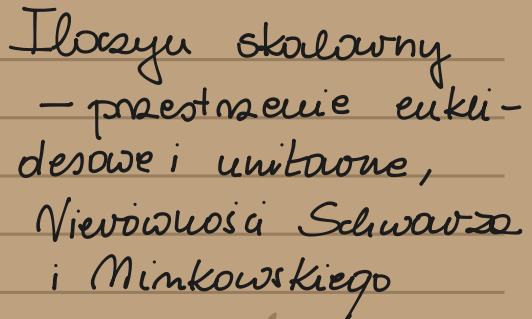 Iloczyn skalarny
- przestrzenie eukli-
desowe i unitarne,
Nierówności Schwarza
i Minkowskiego